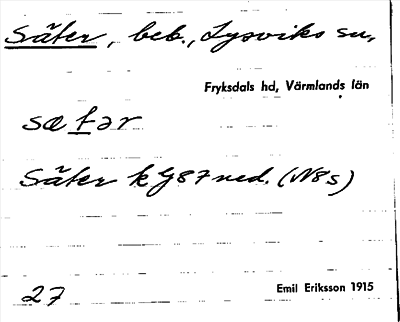 Säter, beb., Lysviks sn,
Fryksdals hd, Värmlands län
sætər
Säter k G87 ned. (N8s)
27
Emil Eriksson 1915